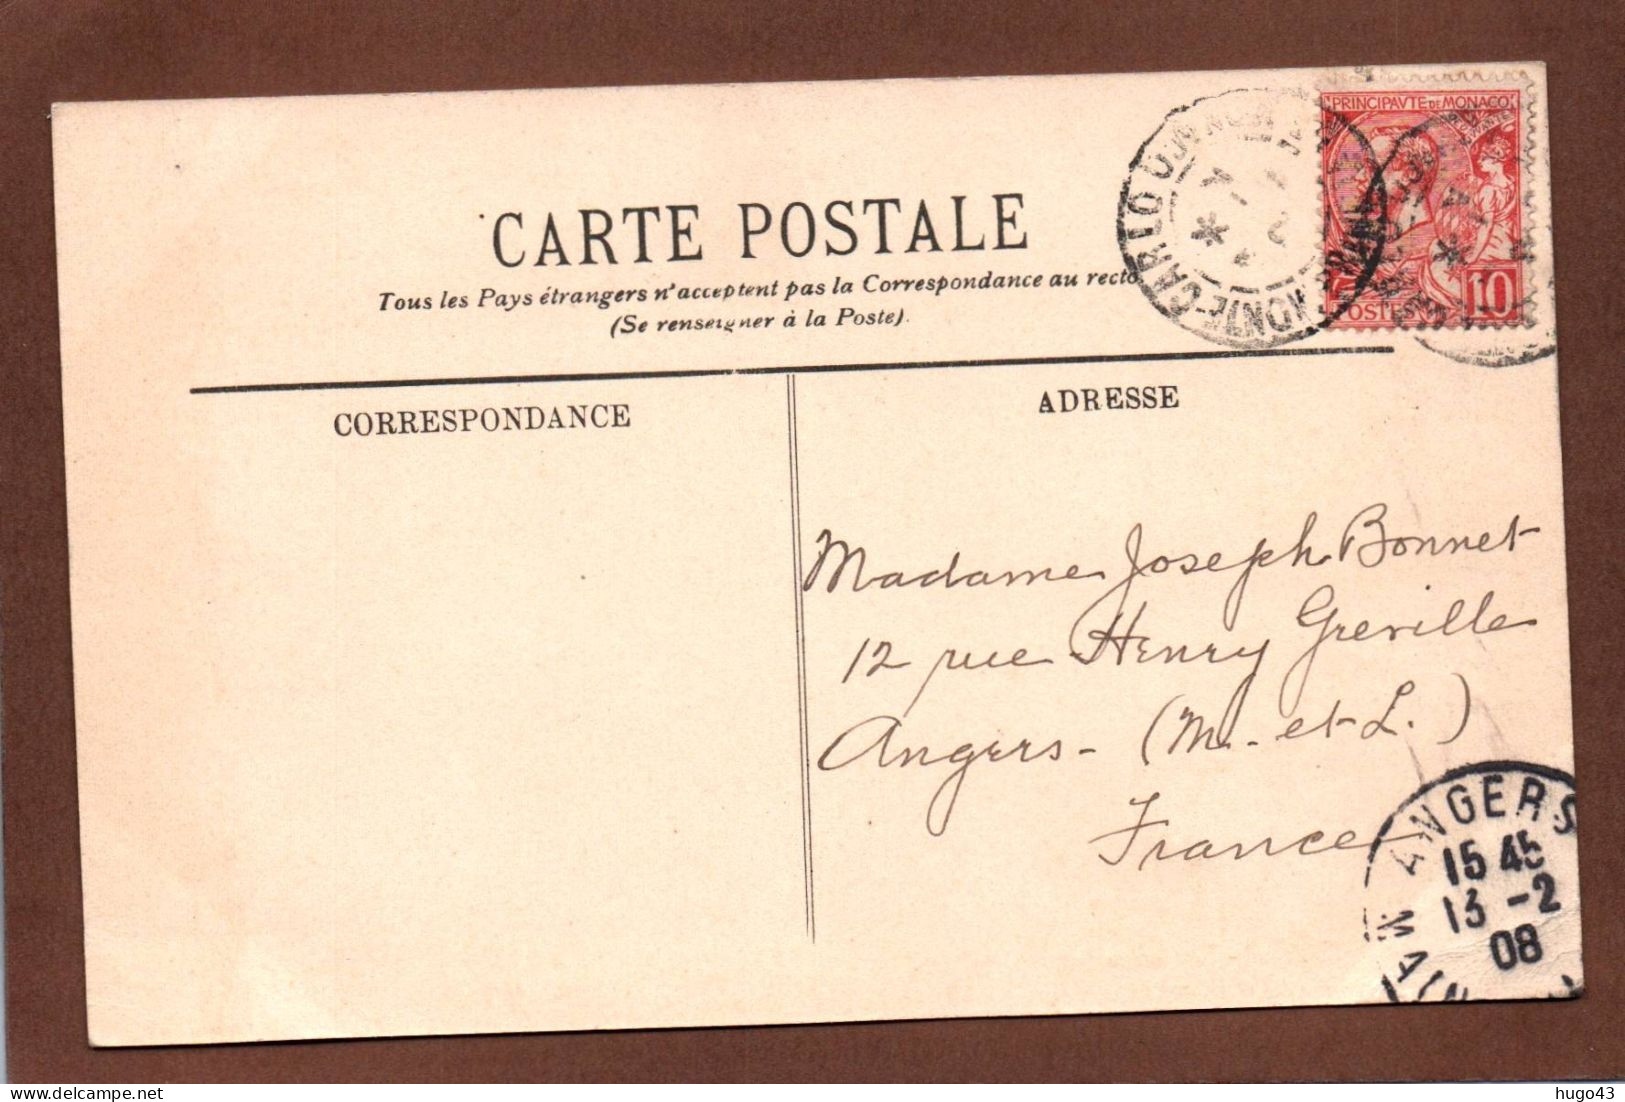 PRINCIPAVTE DE MONACO
MONTE-CARLO
10
POSTES
CARTE POSTALE
Tous les Pays étrangers n'acceptent pas la Correspondance au recto
(Se renseigner à la Poste).
CORRESPONDANCE
ADRESSE
Madame Joseph Bonnet
12 rue Henry Greville
Angers - (M. et L.)
France
ANGERS
15 45
13 -2
08
hugo43